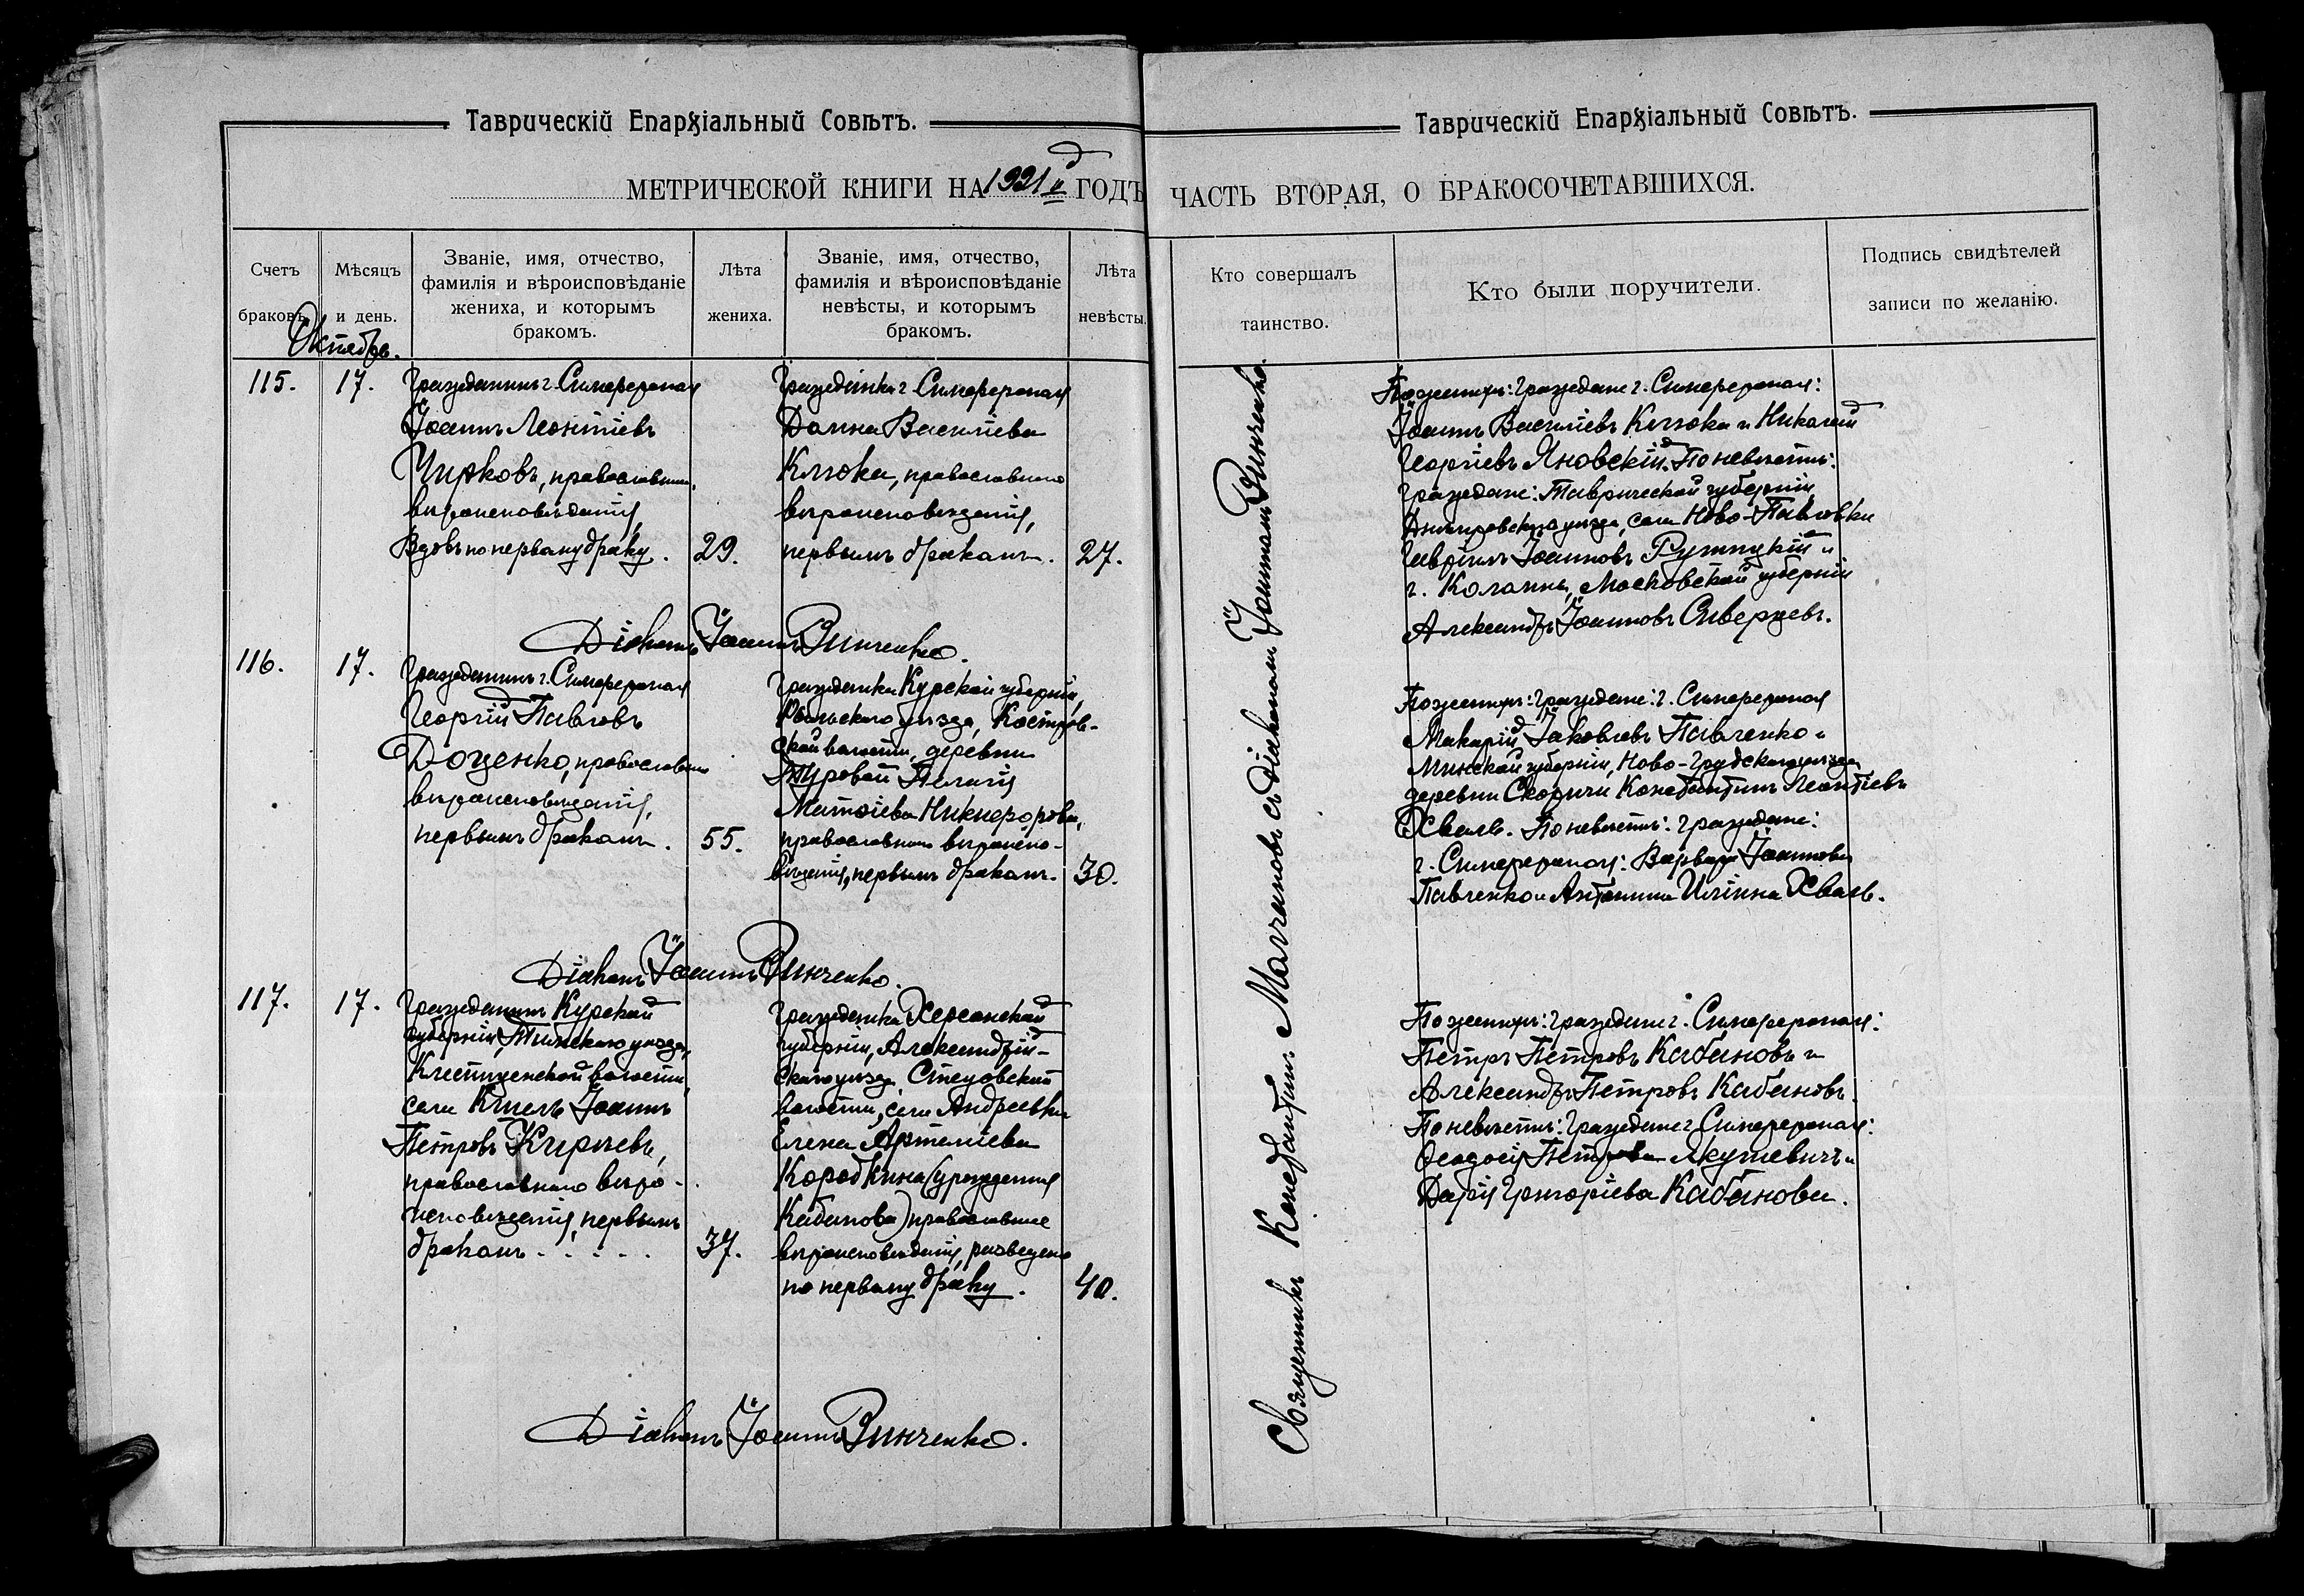 Таврическій Епархіальный Совѣтъ.
МЕТРИЧЕСКОЙ КНИГИ НА 1921й ГОДЪ
Счетъ браковъ.
Мѣсяцъ и день.
Званіе, имя, отчество,
фамилія и вѣроисповѣданіе
жениха, и которымъ
бракомъ.
Лѣта
жениха.
Званіе, имя, отчество,
фамилія и вѣроисповѣданіе
невѣсты, и которымъ
бракомъ.
Лѣта
невѣсты.
Октябрь.
115.
17.
Гражданинъ г. Симферополя
Іоаннъ Леонтіевъ
Чирковъ, православнаго
вѣроисповѣданія,
Вдовъ по первому браку.
29.
Гражданка г. Симферополя
Домна Василіева
Клюка, православнаго
вѣроисповѣданія,
первымъ бракомъ.
27.
Діаконъ Іоаннъ Винченко.
116.
17.
Гражданинъ г. Симферополя
Георгій Павловъ
Доценко, православнаго
вѣроисповѣданія,
первымъ бракомъ.
55.
Гражданка Курской губерніи,
уѣзда, Костров-
ской волости, деревни
Туровой Пелагія
Никифорова,
православнаго вѣроиспо-
вѣданія, первымъ бракомъ.
30.
Діаконъ Іоаннъ Винченко.
117.
17.
Гражданинъ Курской
губерніи, Тимскаго уѣзда,
волости,
села Іоаннъ
Петровъ
православнаго вѣро-
исповѣданія, первымъ
бракомъ . . . . .
37.
Гражданка Херсонской
губерніи, Александрій-
скаго уѣзда,
волости, села Андреевки
Елена Артеміева
Коробкина (урожденная
Кабанова) православнаго
вѣроисповѣданія, разведена
по первому браку.
40.
Діаконъ Іоаннъ Винченко.
Таврическій Епархіальный Совѣтъ.
ЧАСТЬ ВТОРАЯ, О БРАКОСОЧЕТАВШИХСЯ.
Кто совершалъ
таинство.
Кто были поручители.
Подпись свидѣтелей
записи по желанію.
Священникъ Константинъ Молчановъ съ діакономъ Іоанномъ Винченко.
По женихѣ: граждане г. Симферополя:
Іоаннъ Василіевъ Клюка и Николай
Георгіевъ Яновскій. По невѣстѣ:
граждане: Таврической губерніи,
Днѣпровскаго уѣзда, села Ново-Павловки
Гавріилъ Іоанновъ Рутицкій и
г. Коломны, Московской губерніи
Александръ Іоанновъ Сиверцевъ.
По женихѣ: граждане: г. Симферополя
Макарій Іаковлевъ Павленко и
Минской губерніи, Ново-Грудскаго уѣзда
деревни Скоричи Константинъ Леонтіевъ
Хваль. По невѣстѣ: граждане:
г. Симферополя: Варвара Іоаннова
Павленко и Антонина Иліина Хваль.
По женихѣ: граждане г. Симферополя:
Петръ Петровъ Кабановъ и
Александръ Петровъ Кабановъ.
По невѣстѣ: граждане г. Симферополя:
Ѳеодосій Петровъ Якушевичъ и
Дарія Григоріева Кабанова.